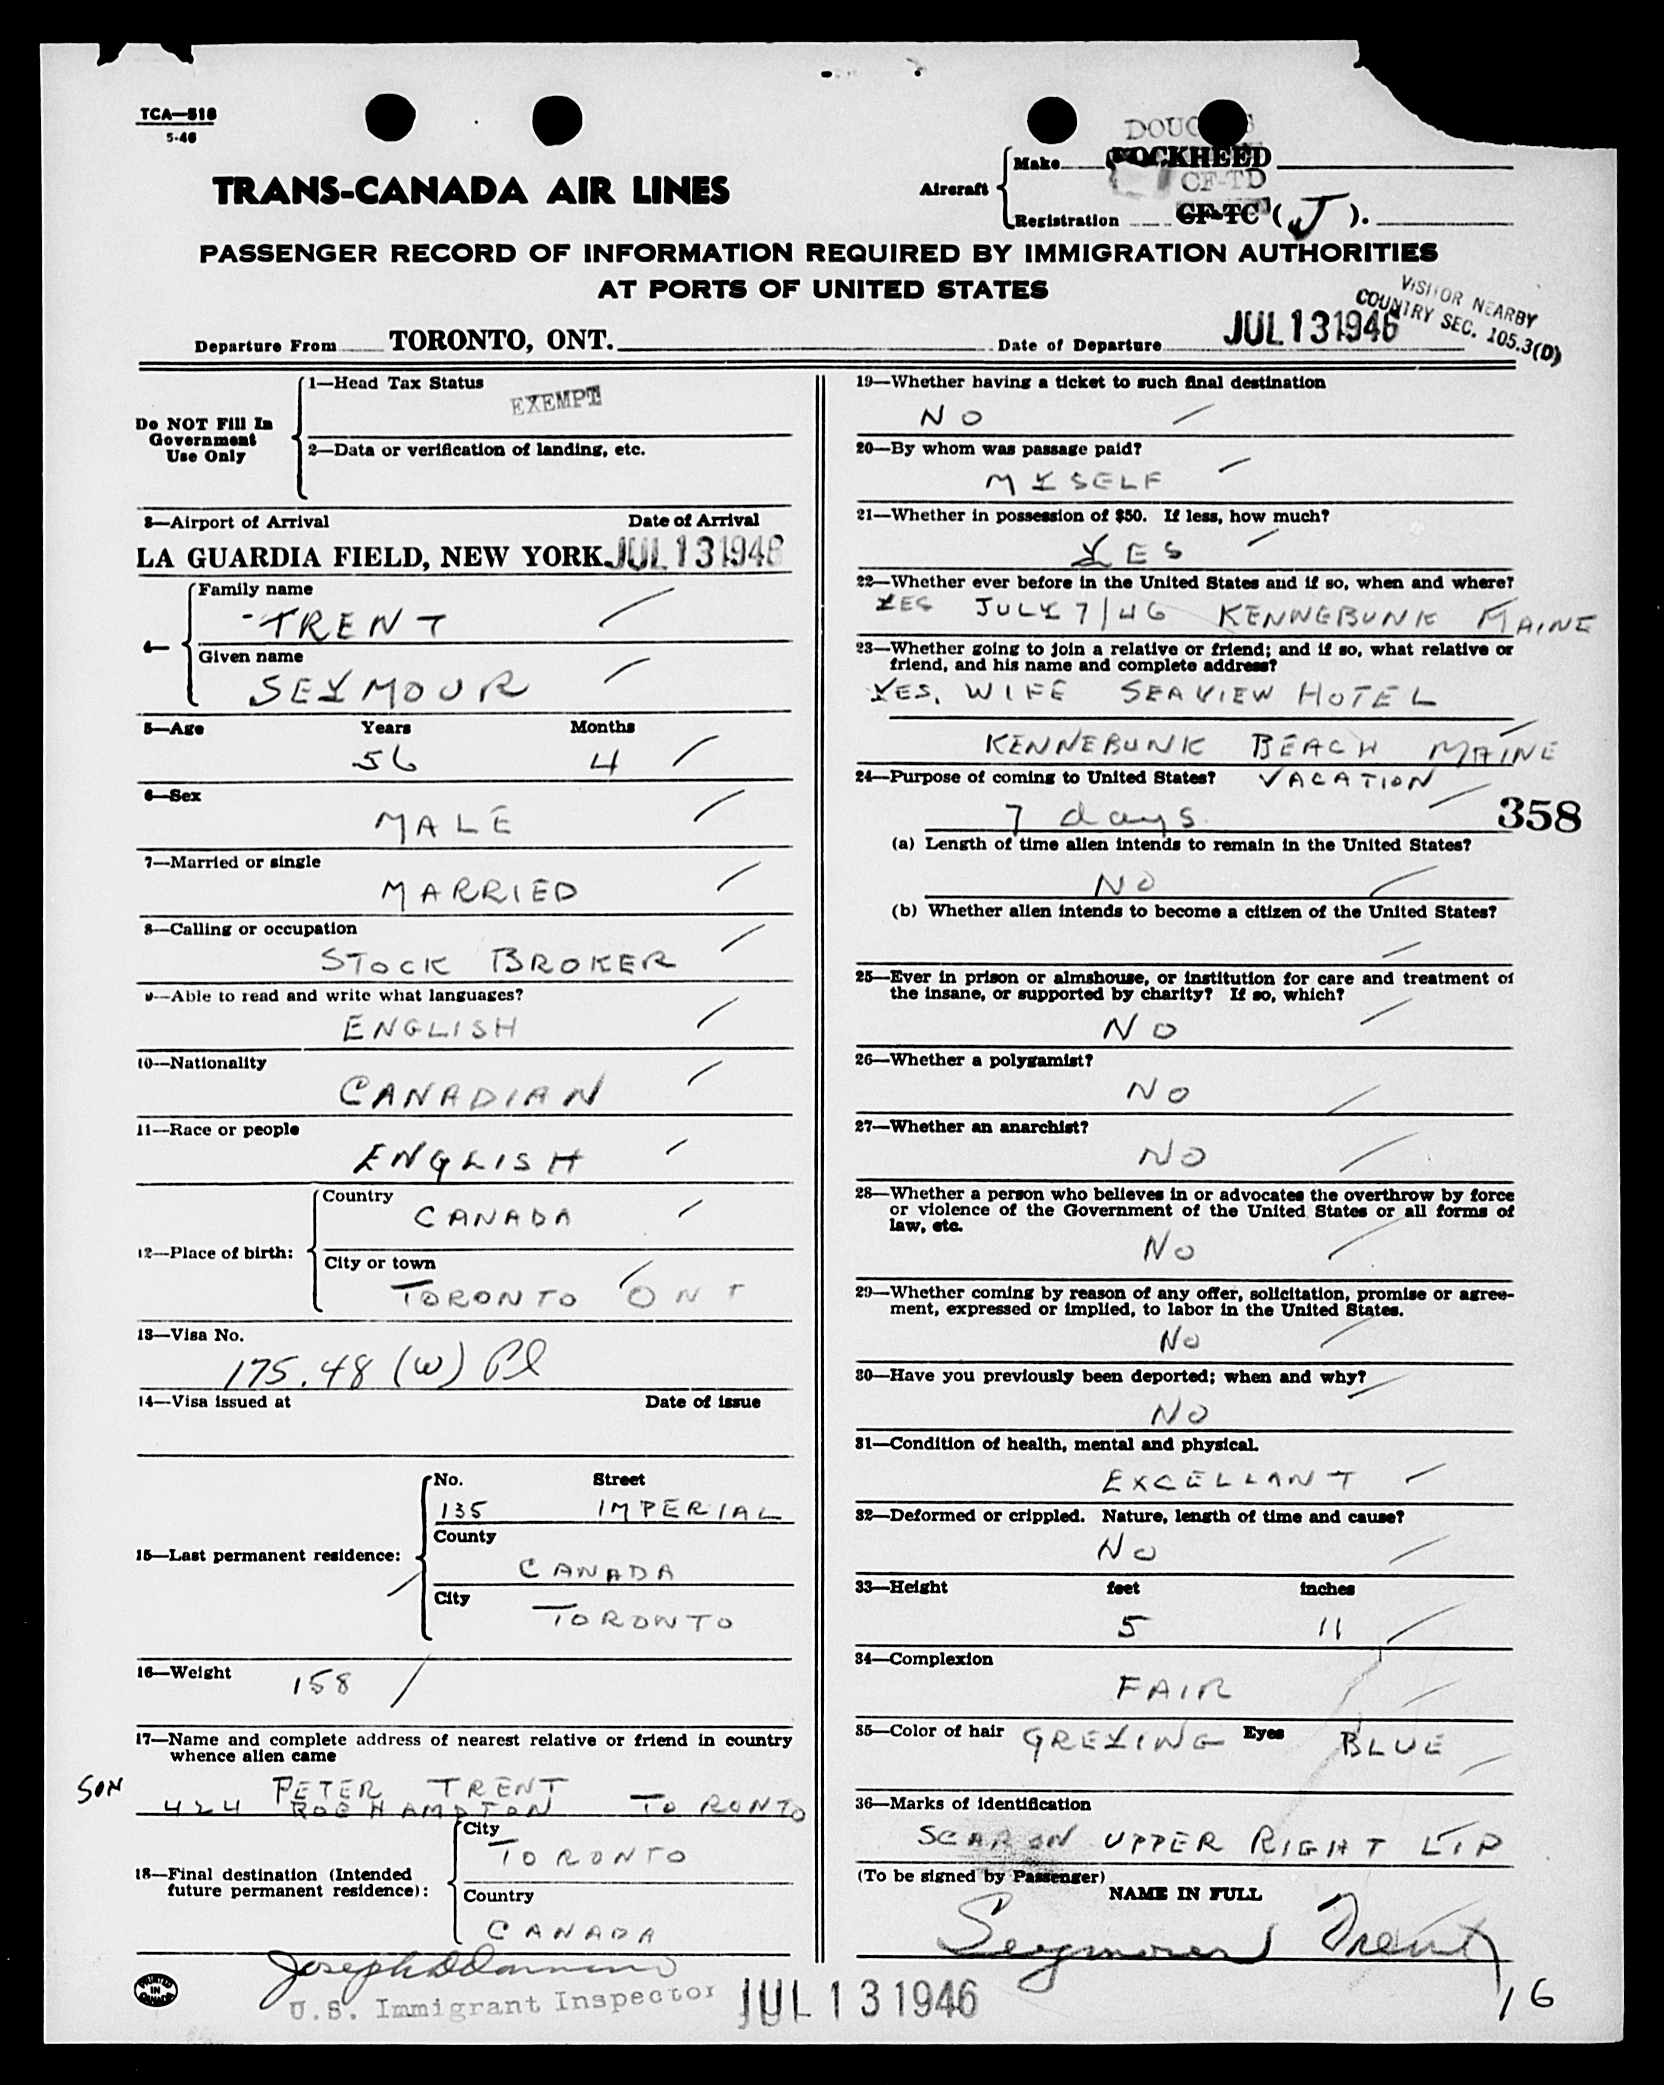 TCA—518
5-46
TRANS-CANADA AIR LINES
Aircraft
DOUG S
Make LOCKHEED
CF-TD
Registration CF-TC (J).
PASSENGER RECORD OF INFORMATION REQUIRED BY IMMIGRATION AUTHORITIES
AT PORTS OF UNITED STATES
VISITOR NEARBY
COUNTRY SEC. 105.3(D)
Departure From TORONTO, ONT. Date of Departure JUL 13 1946
Do NOT Fill In
Government
Use Only
1—Head Tax Status
EXEMPT
2—Data or verification of landing, etc.
3—Airport of Arrival Date of Arrival
LA GUARDIA FIELD, NEW YORK JUL 13 1946
4—
Family name
TRENT
Given name
SEYMOUR
5—Age Years Months
56 4
6—Sex
MALE
7—Married or single
MARRIED
8—Calling or occupation
STOCK BROKER
9—Able to read and write what languages?
ENGLISH
10—Nationality
CANADIAN
11—Race or people
ENGLISH
12—Place of birth:
Country
CANADA
City or town
TORONTO ONT
13—Visa No.
175.48 (W)
14—Visa issued at Date of issue
15—Last permanent residence:
No. Street
135 IMPERIAL
County
CANADA
City
TORONTO
16—Weight 158
17—Name and complete address of nearest relative or friend in country
whence alien came
SON PETER TRENT
424 ROEHAMPTON TORONTO
18—Final destination (Intended
future permanent residence):
City
TORONTO
Country
CANADA
U.S. Immigrant Inspector
JUL 13 1946
PRINTED
IN
CANADA
19—Whether having a ticket to such final destination
NO
20—By whom was passage paid?
MYSELF
21—Whether in possession of $50. If less, how much?
YES
22—Whether ever before in the United States and if so, when and where?
YES JULY 7/46 KENNEBUNK MAINE
23—Whether going to join a relative or friend; and if so, what relative or
friend, and his name and complete address?
YES, WIFE SEAVIEW HOTEL
KENNEBUNK BEACH MAINE
24—Purpose of coming to United States? VACATION
7 days
358
(a) Length of time alien intends to remain in the United States?
NO
(b) Whether alien intends to become a citizen of the United States?
25—Ever in prison or almshouse, or institution for care and treatment of
the insane, or supported by charity? If so, which?
NO
26—Whether a polygamist?
NO
27—Whether an anarchist?
NO
28—Whether a person who believes in or advocates the overthrow by force
or violence of the Government of the United States or all forms of
law, etc.
NO
29—Whether coming by reason of any offer, solicitation, promise or agree-
ment, expressed or implied, to labor in the United States.
NO
30—Have you previously been deported; when and why?
NO
31—Condition of health, mental and physical.
EXCELLANT
32—Deformed or crippled. Nature, length of time and cause?
NO
33—Height feet inches
5 11
34—Complexion
FAIR
35—Color of hair GREYING Eyes BLUE
36—Marks of identification
SCAR ON UPPER RIGHT LIP
(To be signed by Passenger)
NAME IN FULL
Seymour Trent
16